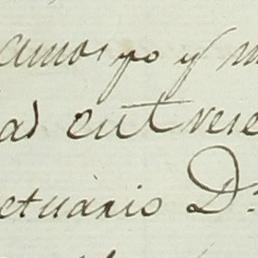 amos yo y m
as entrese
ctuario Dn